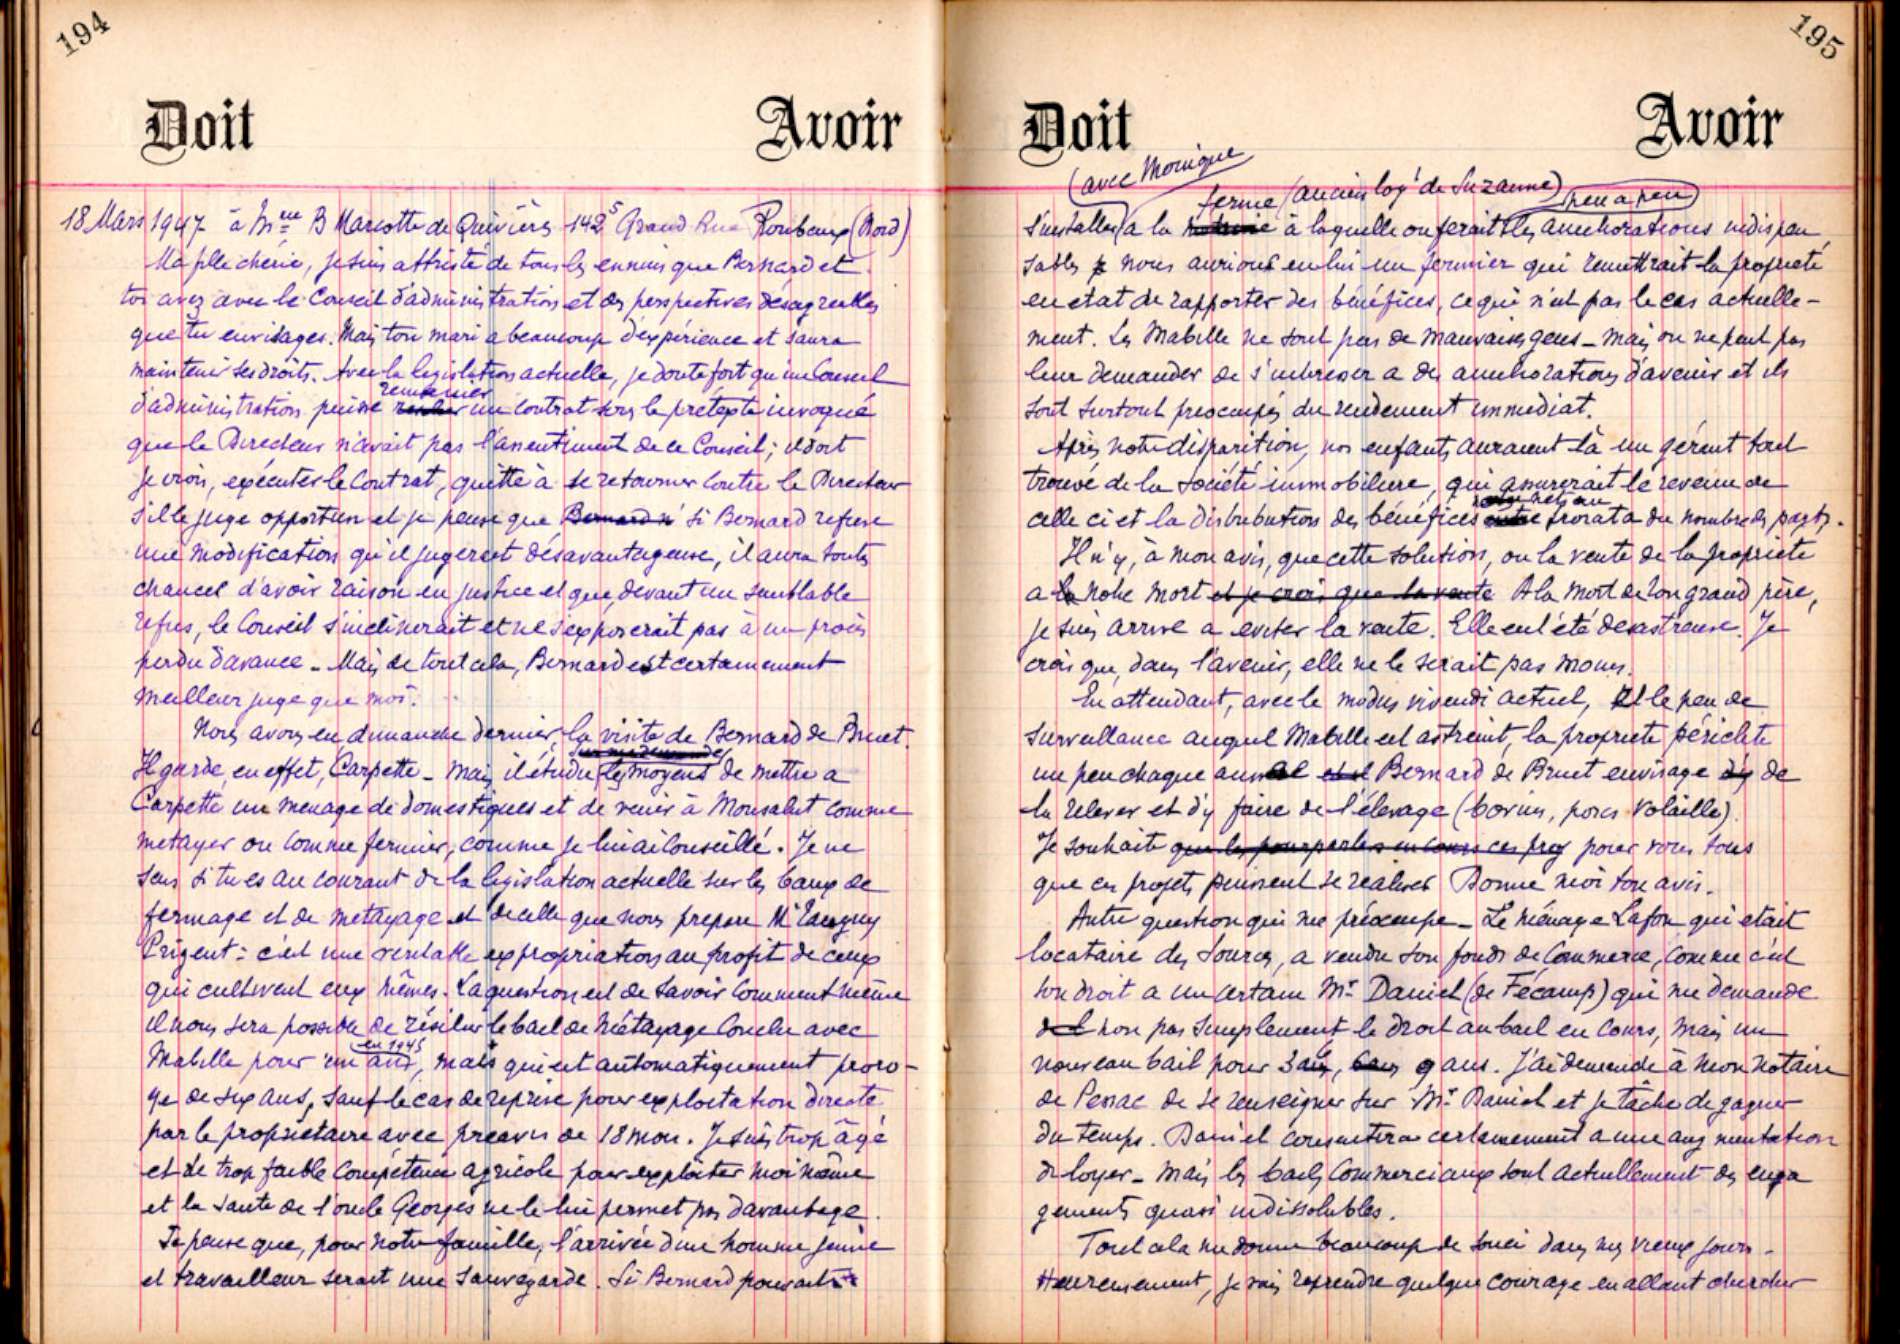 194
Doit Avoir
18 Mars 1947 à Mme B Marcotte de Quivières 142⁵ Grand Rue Roubaix (Nord)
Ma fille chérie, je suis attristé de tous les ennuis que Bernard et
toi avez avec le Conseil d'administration et des perspectives désagréables
que tu envisages. Mais ton mari a beaucoup d'expérience et saura
maintenir ses droits. Avec la legislation actuelle, je doute fort qu'un Conseil
d'administration puisse remanier un contrat sous le pretexte invoqué
que le Directeur n'avait pas l'assentiment de ce Conseil; il doit
je crois, exécuter le Contrat, quitte à se retourner contre le Directeur
s'il le juge opportun et je pense que Bernard n' si Bernard refuse
une modification qu'il jugerait désavantageuse, il aura toutes
chances d'avoir raison en justice et que, devant un semblable
refus, le Conseil s'inclinerait et ne s'exposerait pas à un procès
perdu d'avance _ Mais de tout cela, Bernard est certainement
meilleur juge que moi.
Nous avons eu dimanche dernier, la visite de Bernard de Bruet.
sur ma demande
Il garde, en effet, Carpette _ mais il étudie les moyens de mettre a
Carpette un menage de domestiques et de venir à Monsalut comme
metayer ou comme fermier, comme je lui ai Conseillé. Je ne
sais si tu es au courant de la legislation actuelle sur les baux de
fermage et de metayage et de celle que nous prepare Mr Tanguy
Prigent : c'est une veritable expropriation au profit de ceux
qui cultivent eux mêmes. La question est de savoir comment même
il nous sera possible de résilier le bail de Métayage Conclu avec
en 1945
Mabille pour un and, mais qui est automatiquement proro-
ge de six ans, sauf le cas de reprise pour exploitation directe
par le propriétaire avec preavis de 18 mois. Je suis trop âgé
et de trop faible Compétence agricole pour exploiter moi même
et la sante de l'oncle Georges ne le lui permet pas davantage.
Je pense que, pour notre famille, l'arrivée d'un homme jeune
et travailleur serait une sauvegarde. Si Bernard pouvait
195
Doit Avoir
(avec Monique
ferme (ancien logt de Suzanne) peu a peu
s'installer a la à laquelle on ferait les ameliorations indispen
sables nous aurions en lui un fermier qui remettrait la propriété
en etat de rapporter des bénéfices, ce qui n'est pas le cas actuelle-
ment. Les Mabille ne sont pas de mauvaises gens _ mais on ne peut pas
leur demander de s'interesser a des ameliorations d'avenir et ils
sont surtout preocupés du rendement immediat.
Après notre disparition, nos enfants auraient là un gérent tout
trouvé de la Société immobiliere, qui assurerait le revenu de
celle ci et la distribution des bénéfices au prorata du nombre des parts.
Il n'y, à mon avis, que cette solution, ou la vente de la propriete
a notre mort et je crois que la vente A la mort de ton grand père,
je suis arrivé a eviter la vente. Elle eut été desastreuse. Je
crois que, dans l'avenir, elle ne le serait pas moins.
En attendant, avec le modus vivendi actuel, et le peu de
surveillance auquel Mabille est astreint, la propriete périclite
un peu chaque année et il Bernard de Bruet envisage de
la relever et d'y faire de l'élevage (bovins, porcs volaille).
Je souhaite que les pourparlers en cours ces proj pour vous tous
que ces projets puissent se realiser Donne moi ton avis.
Autre question qui me préocupe _ Le Ménage Lafon qui etait
locataire des Sources, a vendu son fonds de Commerce, comme c'est
son droit a un certain Mr Daniel (de Fécamp) qui me demande
non pas simplement le droit au bail en cours, mais un
nouveau bail pour 3 ans, 6 ans 9 ans. J'ai demandé à mon notaire
de Pessac de se renseigner sur Mr Daniel et je tâche de gagner
du temps. Daniel consentira certainement a une augmentation
de loyer _ Mais les bails Commerciaux sont actuellement des enga
gements quasi indissolubles.
Tout cela me donne beaucoup de souci dans mes vieux jours _
Heureusement, je vais reprendre quelque courage en allant chercher